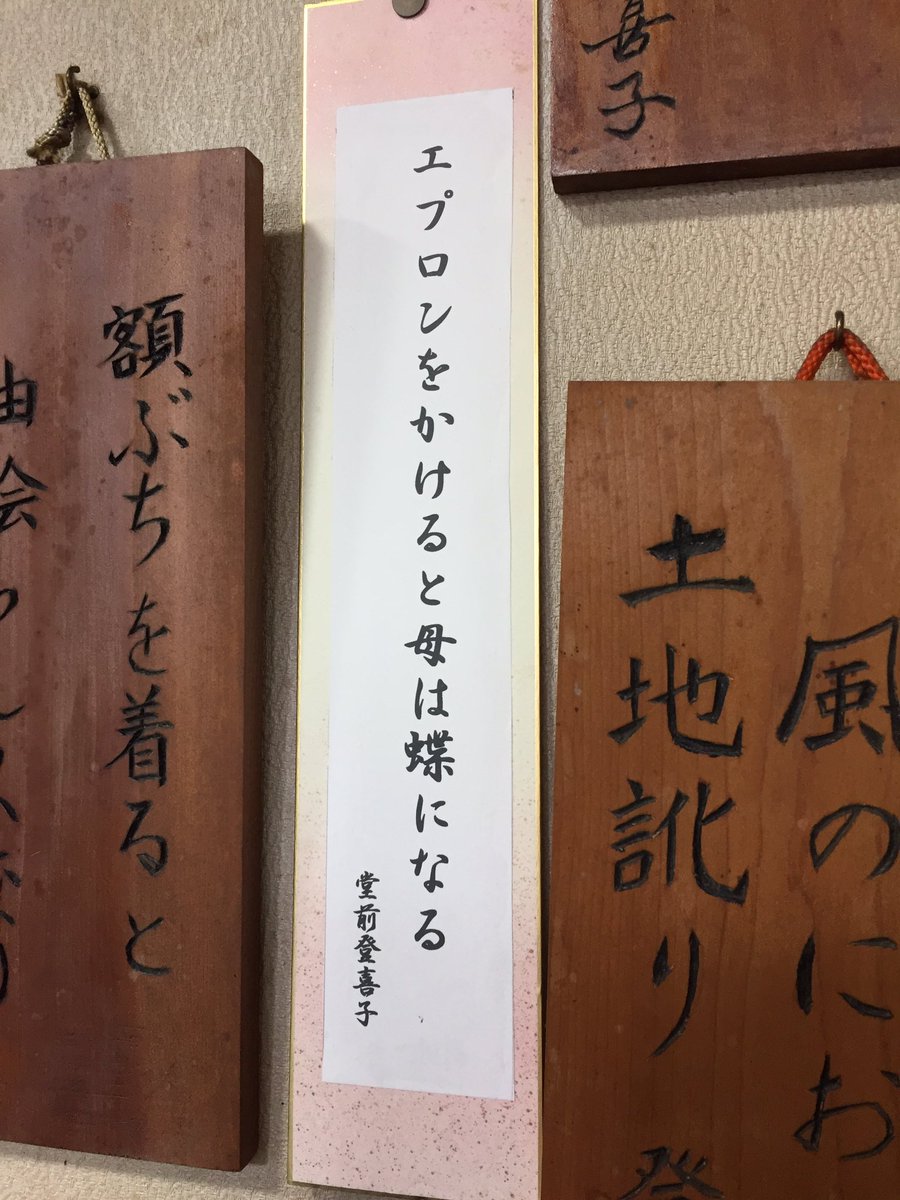 喜子
風のにお
土地訛り 登
エプロンをかけると母は蝶になる
堂前登喜子
額ぶちを着ると